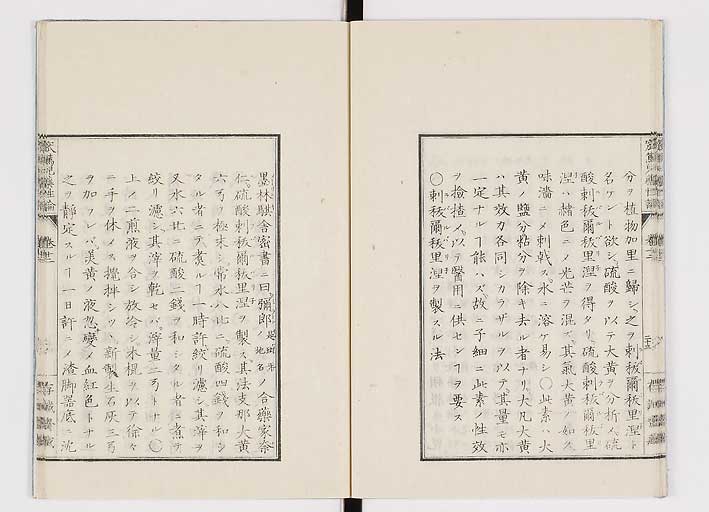 分ヲ植物加里ニ歸シ之ヲ剌栃爾栃里涅ト
名ケント欲シ硫酸ヲ以テ大黄ヲ分析メ硫
酸剌栃爾栃里涅ヲ得タリ硫酸剌栃爾栃里
涅ハ赭色ニメ光芒ヲ混ズ其氣大黄ノ如ス
味濇ニメ刺戟ス水ニ溶ケ易シ〇此素ハ火
黄ノ鹽分粘分ヲ除キ去ル者ナリ大凡大黄
ハ其效力各同シカラザルヲ以テ其量モ亦
一定ナルヿ能ハズ故ニ子細ニ此素ノ性效
ヲ撿査メ以テ醫用ニ供センヿヲ要ス
〇剌栃爾栃里涅ヲ製スル法
墨林騏舎密書ニ曰彌郎ノ地名ノ合藥家奈
仁硫酸剌栃爾栃里涅ヲ製ス其法支那大黄
六弓ヲ極末シ常水八匕ニ硫酸四錢ヲ和シ
タル者ニテ煮ルヿ一時許絞リ濾シ其滓ヲ
又水六匕ニ硫酸二錢ヲ和シタル者ニ煮テ
絞リ濾シ其滓ヲ乾セバ滓量二弓トナル〇
上ノ二煎液ヲ合シ放冷シ木棍ヲ以テ徐々
ニ手ヲ休メス攪拌シツヽ新製生石灰三弓
ヲ加フレバ美黄ノ液忽變メ血紅色トナル
之ヲ靜定スルヿ一日許ニメ渣脚器底ニ沈